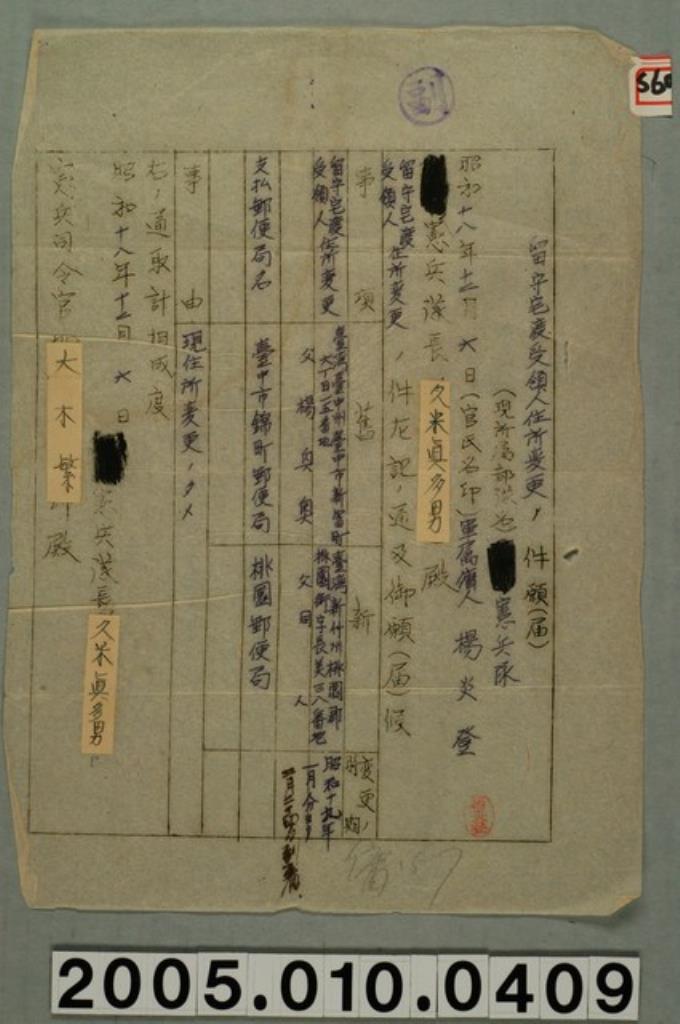 副
S60
留守宅渡受領人住所変更ノ件願(届)
(現所属部隊名)憲兵隊
昭和十八年十二月六日(官氏名印)軍属傭人 楊炎登
憲兵隊長 久米貞多男 殿
留守宅渡受領人住所変更ノ件左記ノ通及御願(届)候
事項 舊 新 変更ノ時期
留守宅渡受領人住所変更
臺湾臺中州臺中市新富町六丁目一五番地
父 楊奥
臺湾新竹州桃園郡桃園街字長美三八番地
父 同人
昭和十九年一月分ヨリ
支払郵便局名 臺中市錦町郵便局 桃園郵便局
事由 現住所変更ノタメ
右ノ通取計相成度
昭和十八年十二月六日
憲兵隊長 久米貞多男
憲兵司令官 大木繁 殿
2005.010.0409